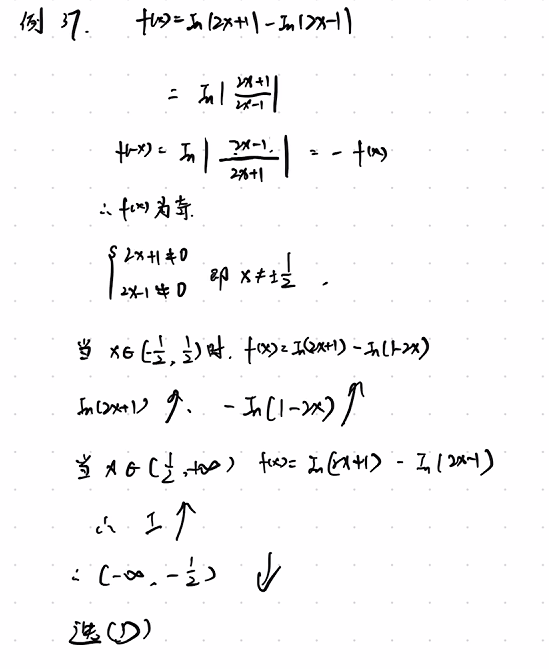 例 37. f(x)=In|2x+1|-In|2x-1|
= In|\frac{2x+1}{2x-1}|
f(-x)= In|\frac{2x-1}{2x+1}| = - f(x)
∴ f(x)为奇.
{2x+1≠0
{2x-1≠0 即 x≠±\frac{1}{2} .
当 x∈(-\frac{1}{2}, \frac{1}{2})时. f(x)=In(2x+1)-In(1-2x)
In(2x+1) ↑. -In(1-2x)↑
当 x∈(\frac{1}{2},+∞) f(x)= In(2x+1) - In(2x-1)
∴ ↑
∴ (-∞, -\frac{1}{2}) ↓
选(D)